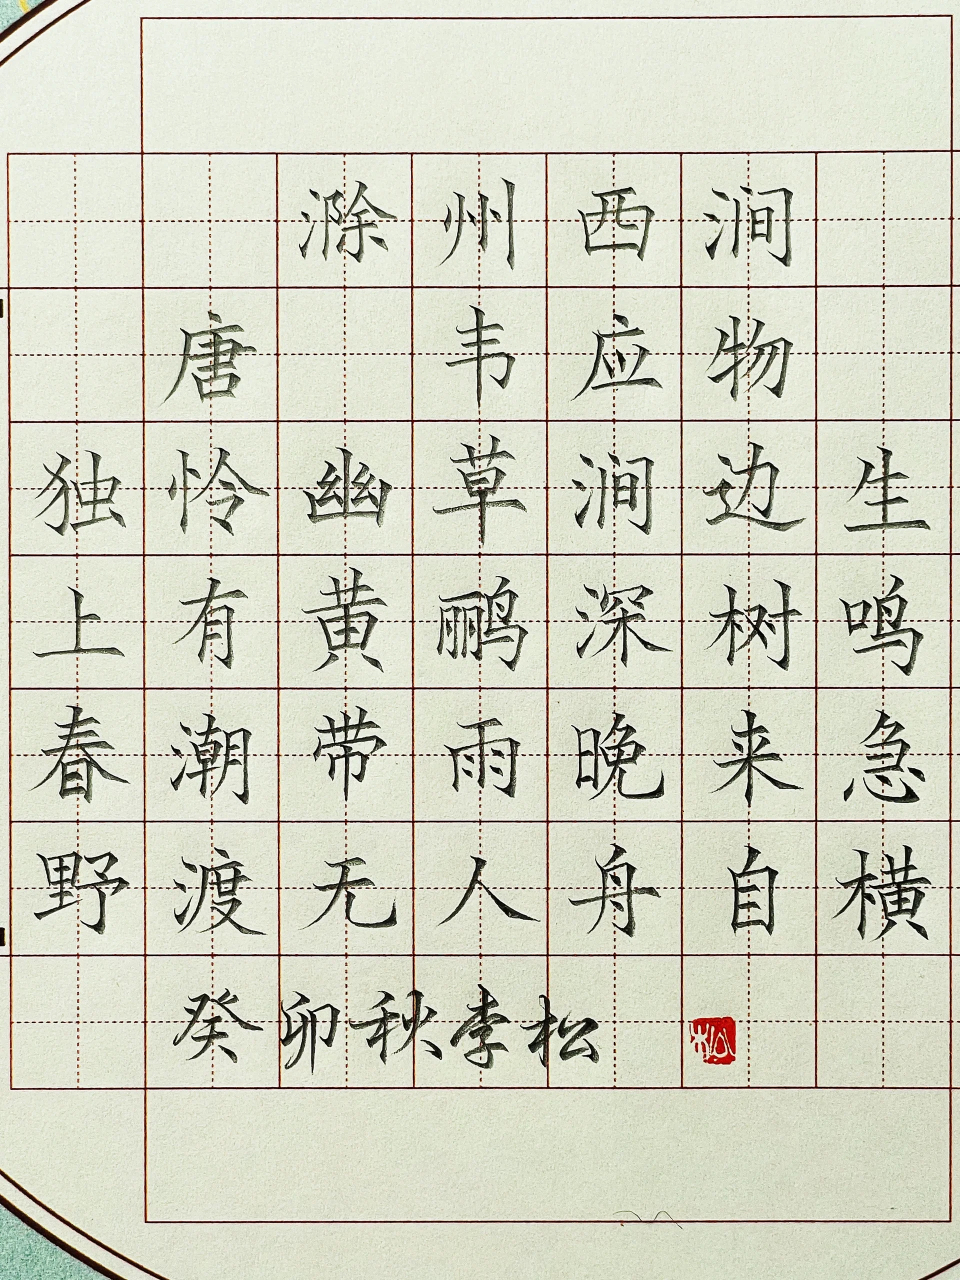 滁州西涧
唐 韦应物
独怜幽草涧边生
上有黄鹂深树鸣
春潮带雨晚来急
野渡无人舟自横
癸卯秋李松
松